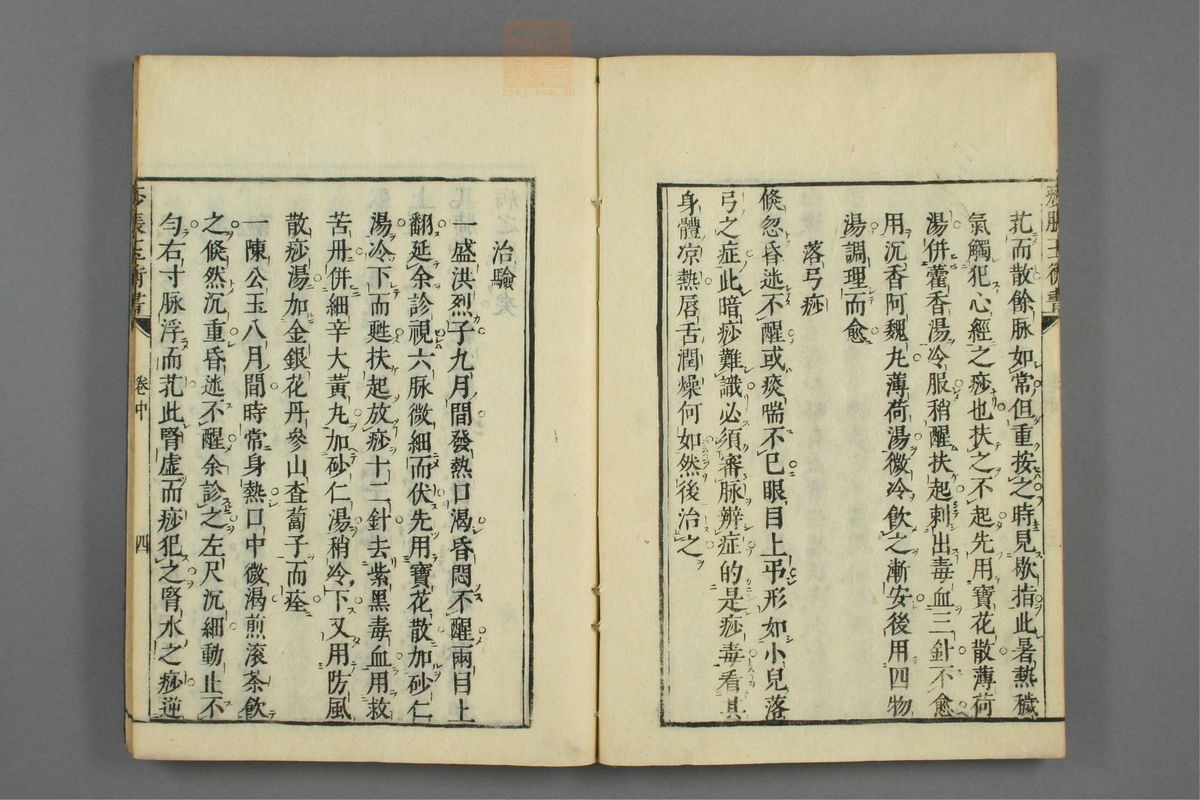 芤而散餘脉如常但重按之時見歇指此暑熱穢
氣觸犯心經之痧也扶之不起先用寶花散薄荷
湯併藿香湯冷服稍醒扶起刺出毒血三針不愈
用沉香阿魏丸薄荷湯微冷飲之漸安後用四物
湯調理而愈
落弓痧
倐忽昏迯不醒或痰喘不已眼目上弔形如小兒落
弓之症此暗痧難識必須審脉辨症的是痧毒看其
身體凉熱唇舌潤燥何如然後治之
治驗
一盛洪烈子九月間發熱口渴昏悶不醒兩目上
翻延余診視六脉微細而伏先用寶花散加砂仁
湯冷下而甦扶起放痧十二針去紫黑毒血用救
苦丹併細辛大黃丸加砂仁湯稍冷下又用防風
散痧湯加金銀花丹參山查蔔子而痊
一陳公玉八月間時常身熱口中微渴煎滾茶飲
之倐然沉重昏迯不醒余診之左尺沉細動止不
勻右寸脉浮而芤此腎虛而痧犯之腎水之痧逆
卷中
四